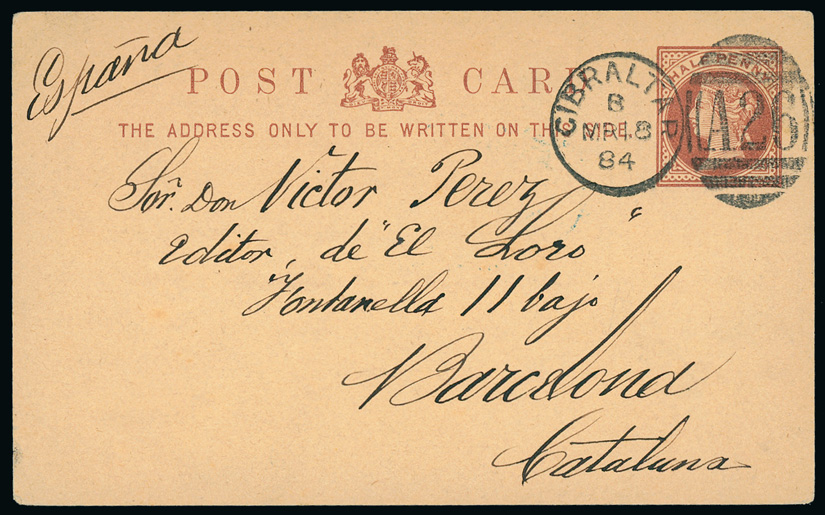 España
POST CARD
THE ADDRESS ONLY TO BE WRITTEN ON THE SIDE.
HALF PENNY
GIBRALTAR
B
MR 18
84
A26
Sor. Don Victor Perez
editor, de "El Loro"
Fontanella 11 bajo
Barcelona
Cataluna